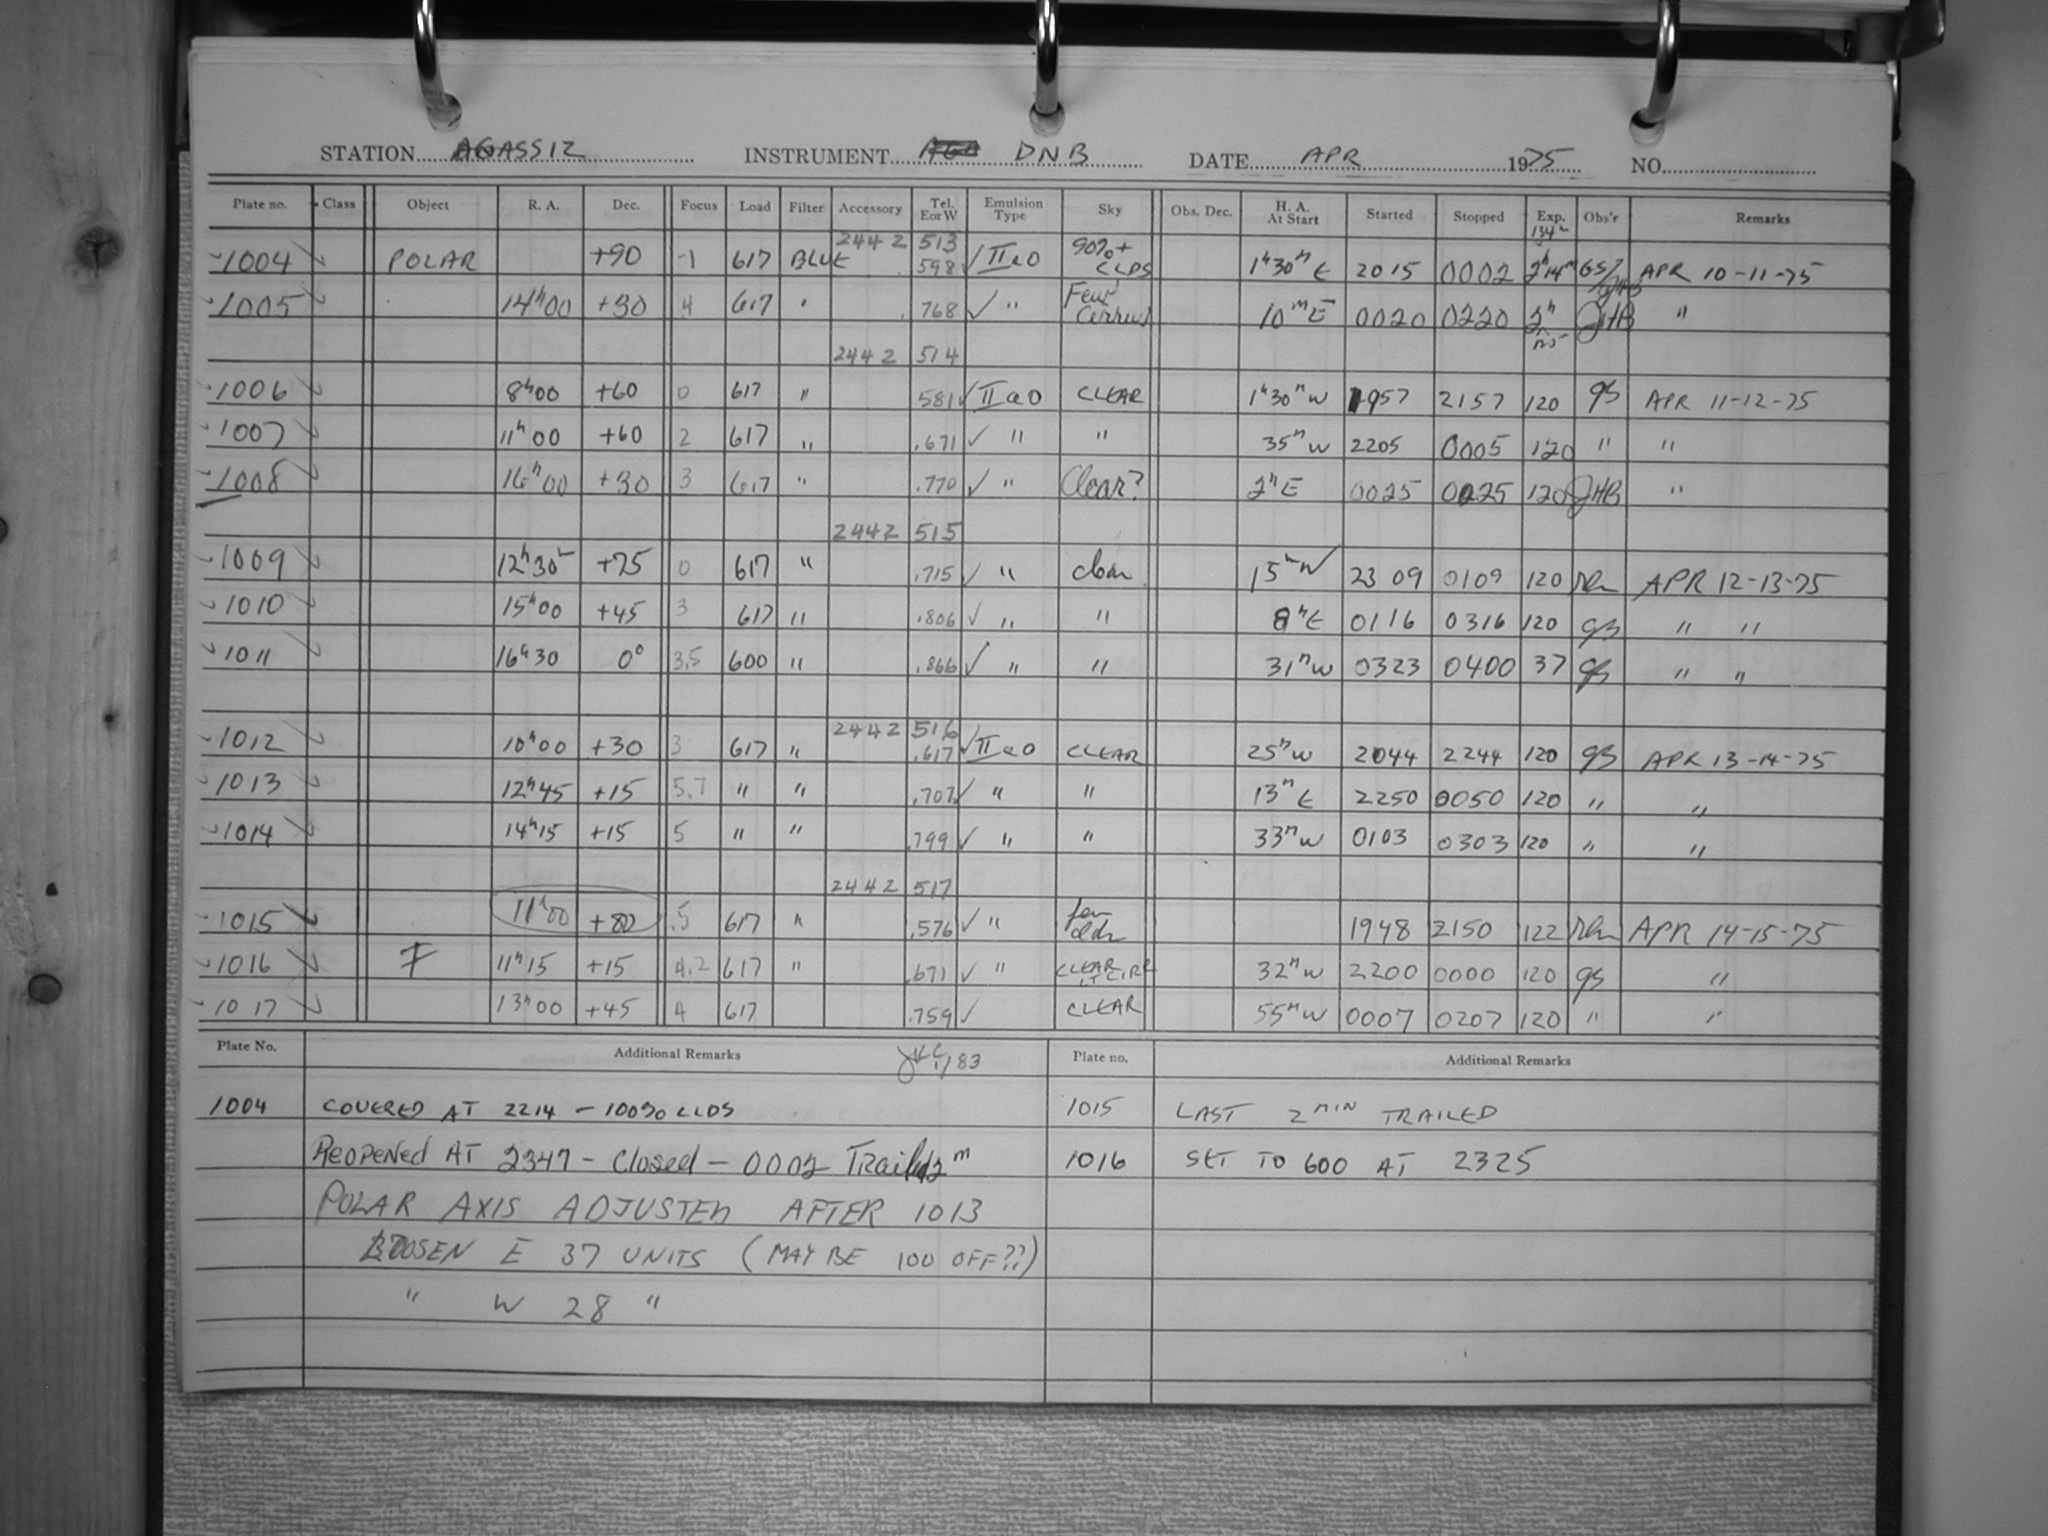 STATION AGASSIZ INSTRUMENT DNB DATE APR 1975 NO.
Plate no. Class Object R. A. Dec. Focus Load Filter Accessory Tel. E or W Emulsion Type Sky Obs. Dec. H. A. At Start Started Stopped Exp. Obs'r Remarks
2442 513 90%+ 134m
1004 POLAR +90 -1 617 BLUE .598 IIaO CLDS 1h30m E 2015 0002 2h14m GS/JHB APR 10-11-75
1005 14h00 +30 4 617 " .768 " Few Cirrus 10m E 0020 0220 2h JHB "
2442 514
1006 8h00 +60 0 617 " .581 IIaO CLEAR 1h30m W 1957 2157 120 gs APR 11-12-75
1007 11h00 +60 2 617 " .671 " " 35m W 2205 0005 120 " "
1008 16h00 +30 3 617 " .770 " Clear? 2h E 0025 0225 120 JHB "
2442 515
1009 12h30m +75 0 617 " .715 " clear 15m W 2309 0109 120 APR 12-13-75
1010 15h00 +45 3 617 " .806 " " 8m E 0116 0316 120 gs " "
1011 16h30 0° 3.5 600 " .866 " " 31m W 0323 0400 37 gs " "
2442 516
1012 10h00 +30 3 617 " .617 IIaO CLEAR 25m W 2044 2244 120 gs APR 13-14-75
1013 12h45 +15 5.7 " " .707 " " 13m E 2250 0050 120 " "
1014 14h15 +15 5 " " .799 " " 33m W 0103 0303 120 " "
2442 517
1015 11h00 +80 .5 617 " .576 " few clds 1948 2150 122 APR 14-15-75
1016 F 11h15 +15 4.2 617 " .671 " CLEAR LT CIRR 32m W 2200 0000 120 gs "
1017 13h00 +45 4 617 .759 CLEAR 55m W 0007 0207 120 " "
Plate No. Additional Remarks 1/83 Plate no. Additional Remarks
1004 COVERED AT 2214 - 100% CLDS 1015 LAST 2 MIN TRAILED
REOPENED AT 2347 - Closed - 0002 Trailed 2m 1016 SET TO 600 AT 2325
POLAR AXIS ADJUSTED AFTER 1013
LOOSEN E 37 UNITS (MAY BE 100 OFF??)
" W 28 "